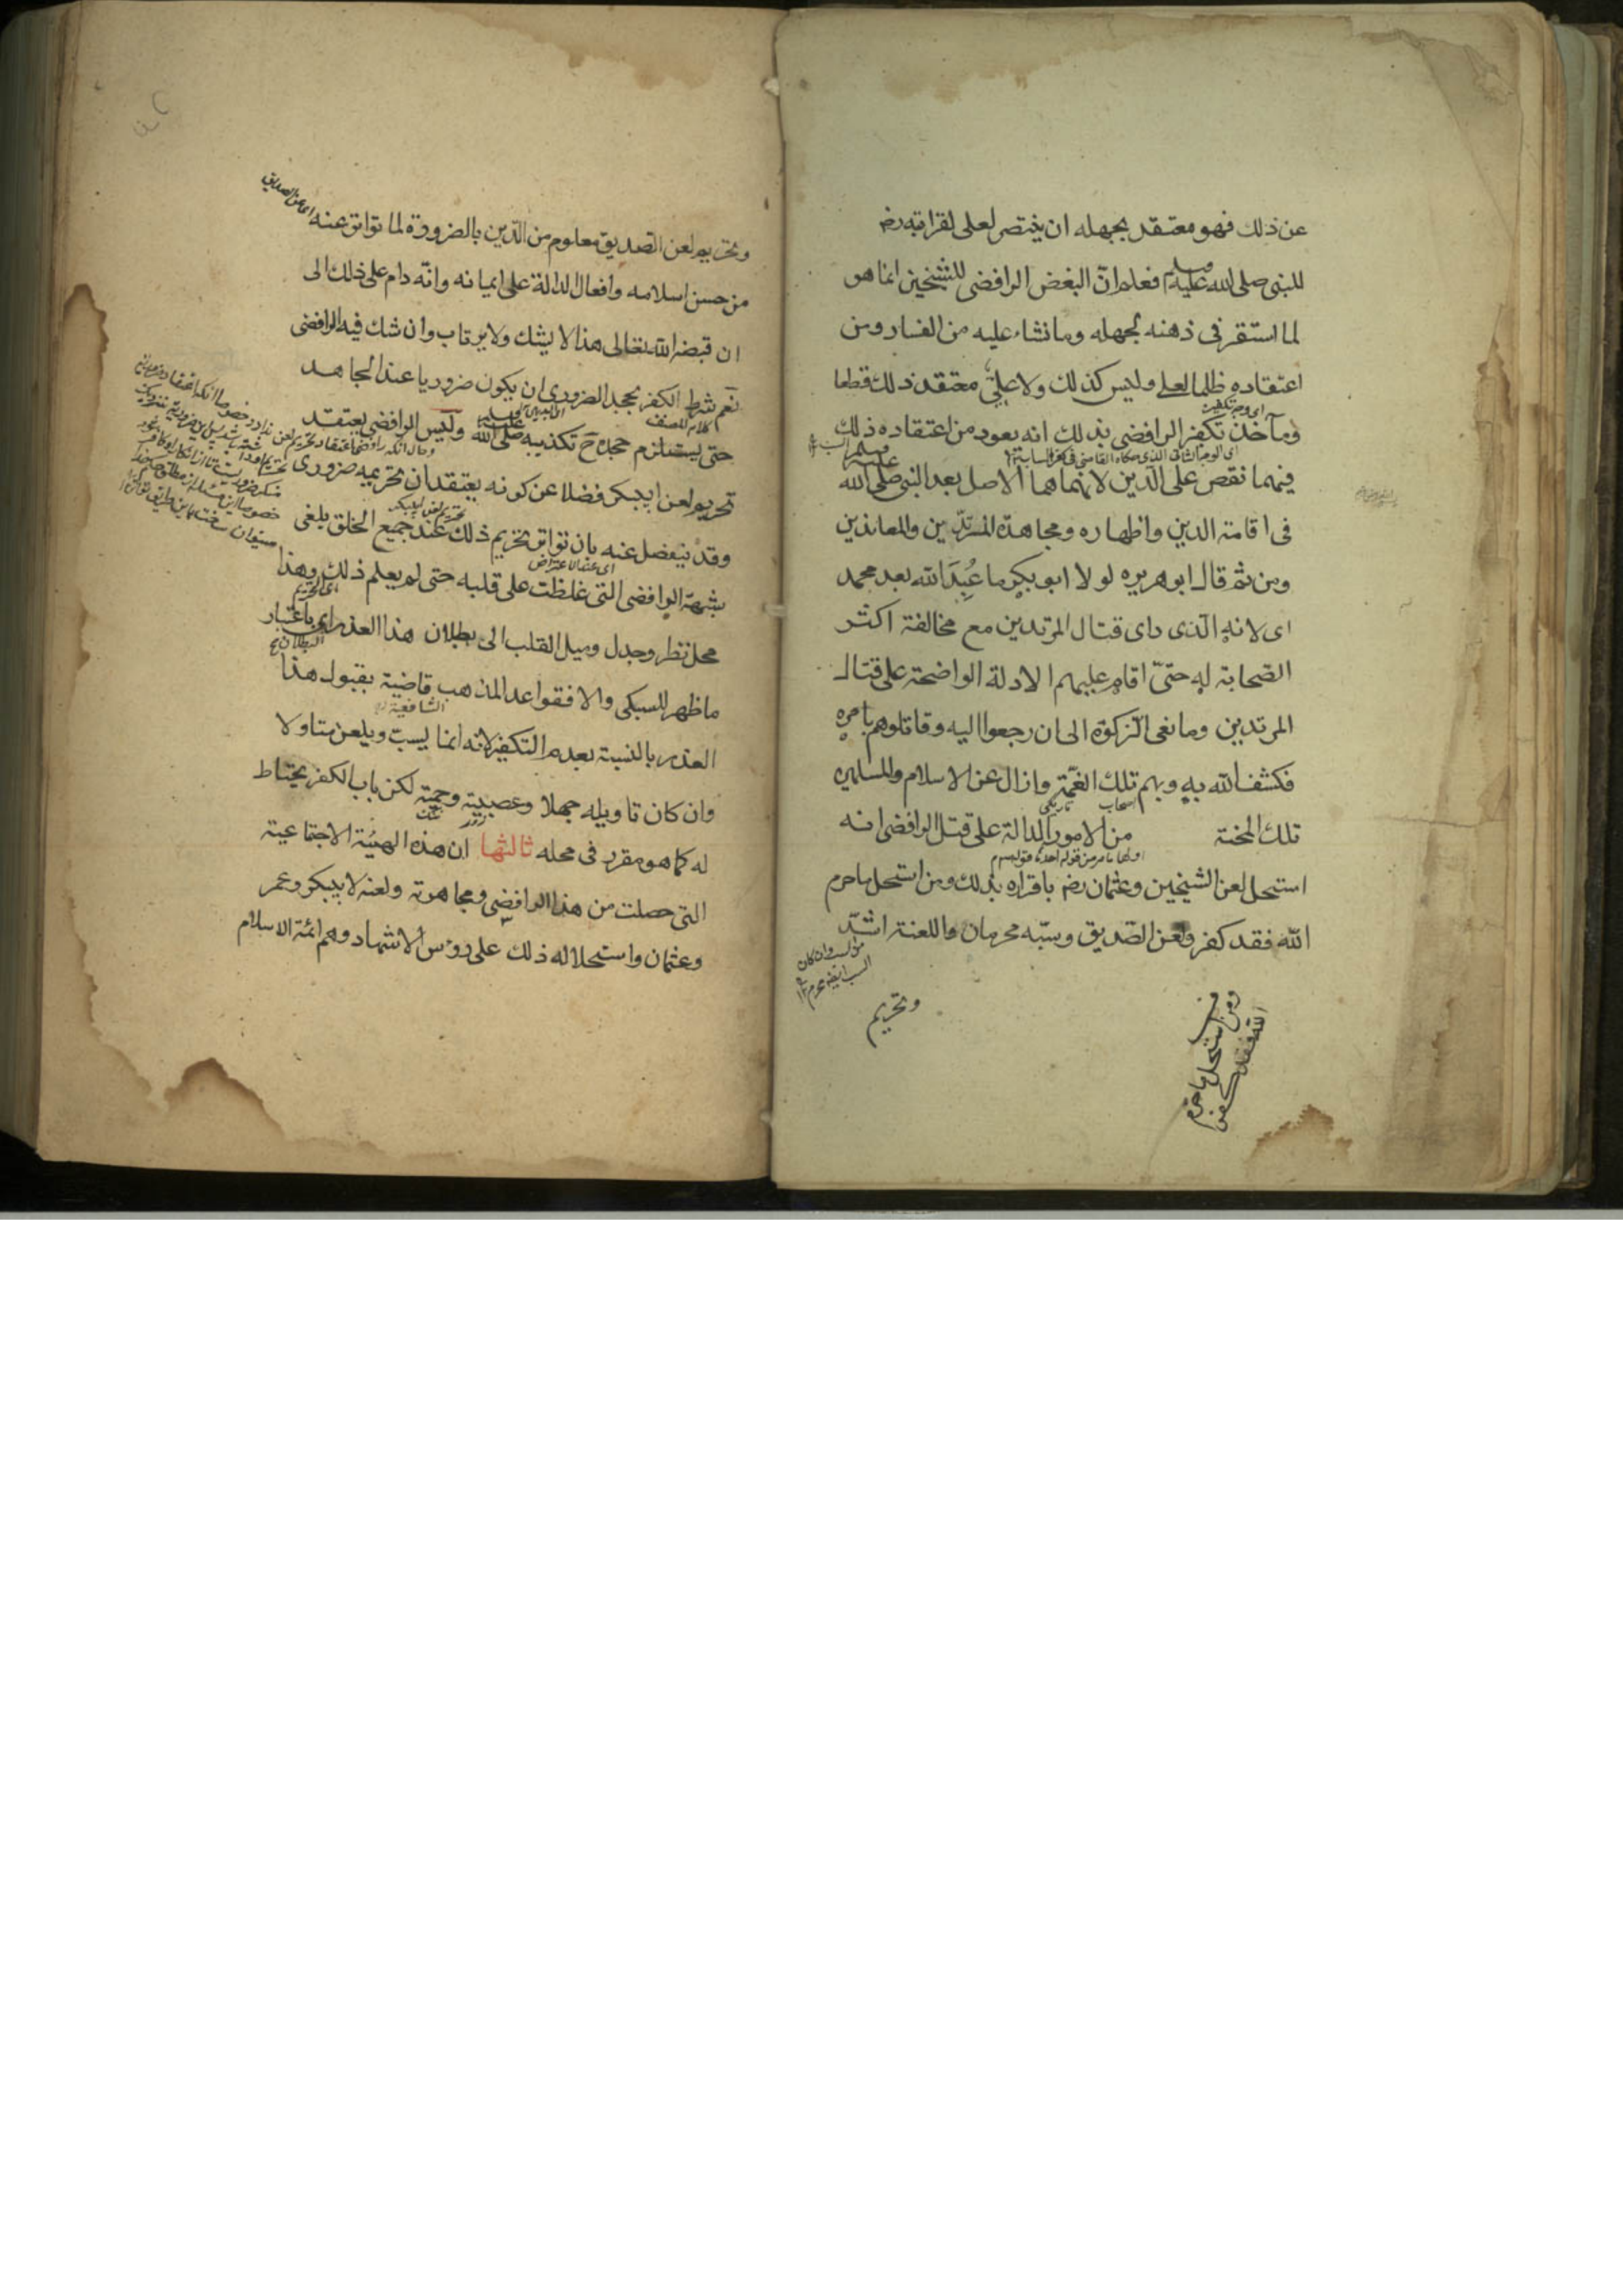 عن ذلك فهو معتقد بجهله ان ينتصر لعلى لقرابته رض
للنبى صلى الله عليه وسلم فعلم ان البغض الرافضى للشيخين انما هو
لما استقر فى ذهنه لجهله وما نشاء عليه من الفساد ومن
اعتقاده ظلما لعلى وليس كذلك ولا علىّ معتقد ذلك قطعا
اى وجه تكفير
ومآخذ تكفر الرافضى بذلك انه يعود من اعتقاده ذلك
فيهما نقص على الدين لانهما هما الاصل بعد النبى صلى الله عليه وسلم
فى اقامة الدين واظهاره ومجاهدة المرتدّين والمعاندين
ومن ثم قال ابو هريره لو لا ابو بكر ما عُبِدَ الله بعد محمد
اى لانه الّذى راى قتال المرتدين مع مخالفة اكثر
الصّحابة له حتىّ اقام عليهم الادلة الواضحة على قتال
المرتدين ومانعى الزكوة الى ان رجعوا اليه وقاتلوهم بامره
فكشف الله به وبهم تلك الغمّة وازال عن الاسلام والمسلمين
تلك المحنة من الامور الدالة على قتل الرافضى انه
استحل لعن الشيخين وعثمان رضم باقراره بذلك ومن استحل ما حرم
الله فقد كفر ولعن الصّديق وسبّه محرمان واللعنة اشدّ
السب ايضه محرم ١٢
وتحريم
ومن استحل ما حرم
الله فقد كفر
اى عن الصديق
وتحريم لعن الصّديق معلوم من الدّين بالضرورة لما تواتر عنه
من حسن اسلامه وافعال الدالة على ايمانه وانّه دام على ذلك الى
ان قبضه الله تعالى هذا لا يشك ولا يرتاب وان شك فيه الرافضى
نعم شرط الكفر بجحد الضرورى ان يكون ضروريا عند الجاهد
كلام المصنف
حتى يستلزم جحده ح تكذيبه صلى الله عليه وسلم وليس الرافضى يعتقد
تحريم لعن ابيبكر فضلا عن كونه يعتقد ان تحريمه ضرورى
تحريم لعن ابيبكر
وقد ينفصل عنه بان تواتر تحريم ذلك عند جميع الخلق يلغى
اى عن الاعتراض
شبهة الرافضى التى غلظت على قلبه حتى لم يعلم ذلك وهذا
اى التحريم
محل نظر وجدل وميل القلب الى بطلان هذا العذر اى باعتبار
البطلان
ما ظهر للسبكى والا فقواعد المذهب قاضية بقبول هذا
الشافعية
العذر بالنسبة بعدم التكفير لانه انما يسبّ ويلعن متاولا
وان كان تاويله جهلا وعصبية وحمية لكن باب الكفر يحتاط
له كما هو مقرر فى محله ثالثها ان هذه الهيئة الاجتماعية
التى حصلت من هذا الرافضى ومجاهرته ولعنه لابيبكر وعمر
وعثمان واستحلاله ذلك على رؤس الاشهاد وهم ائمة الاسلام